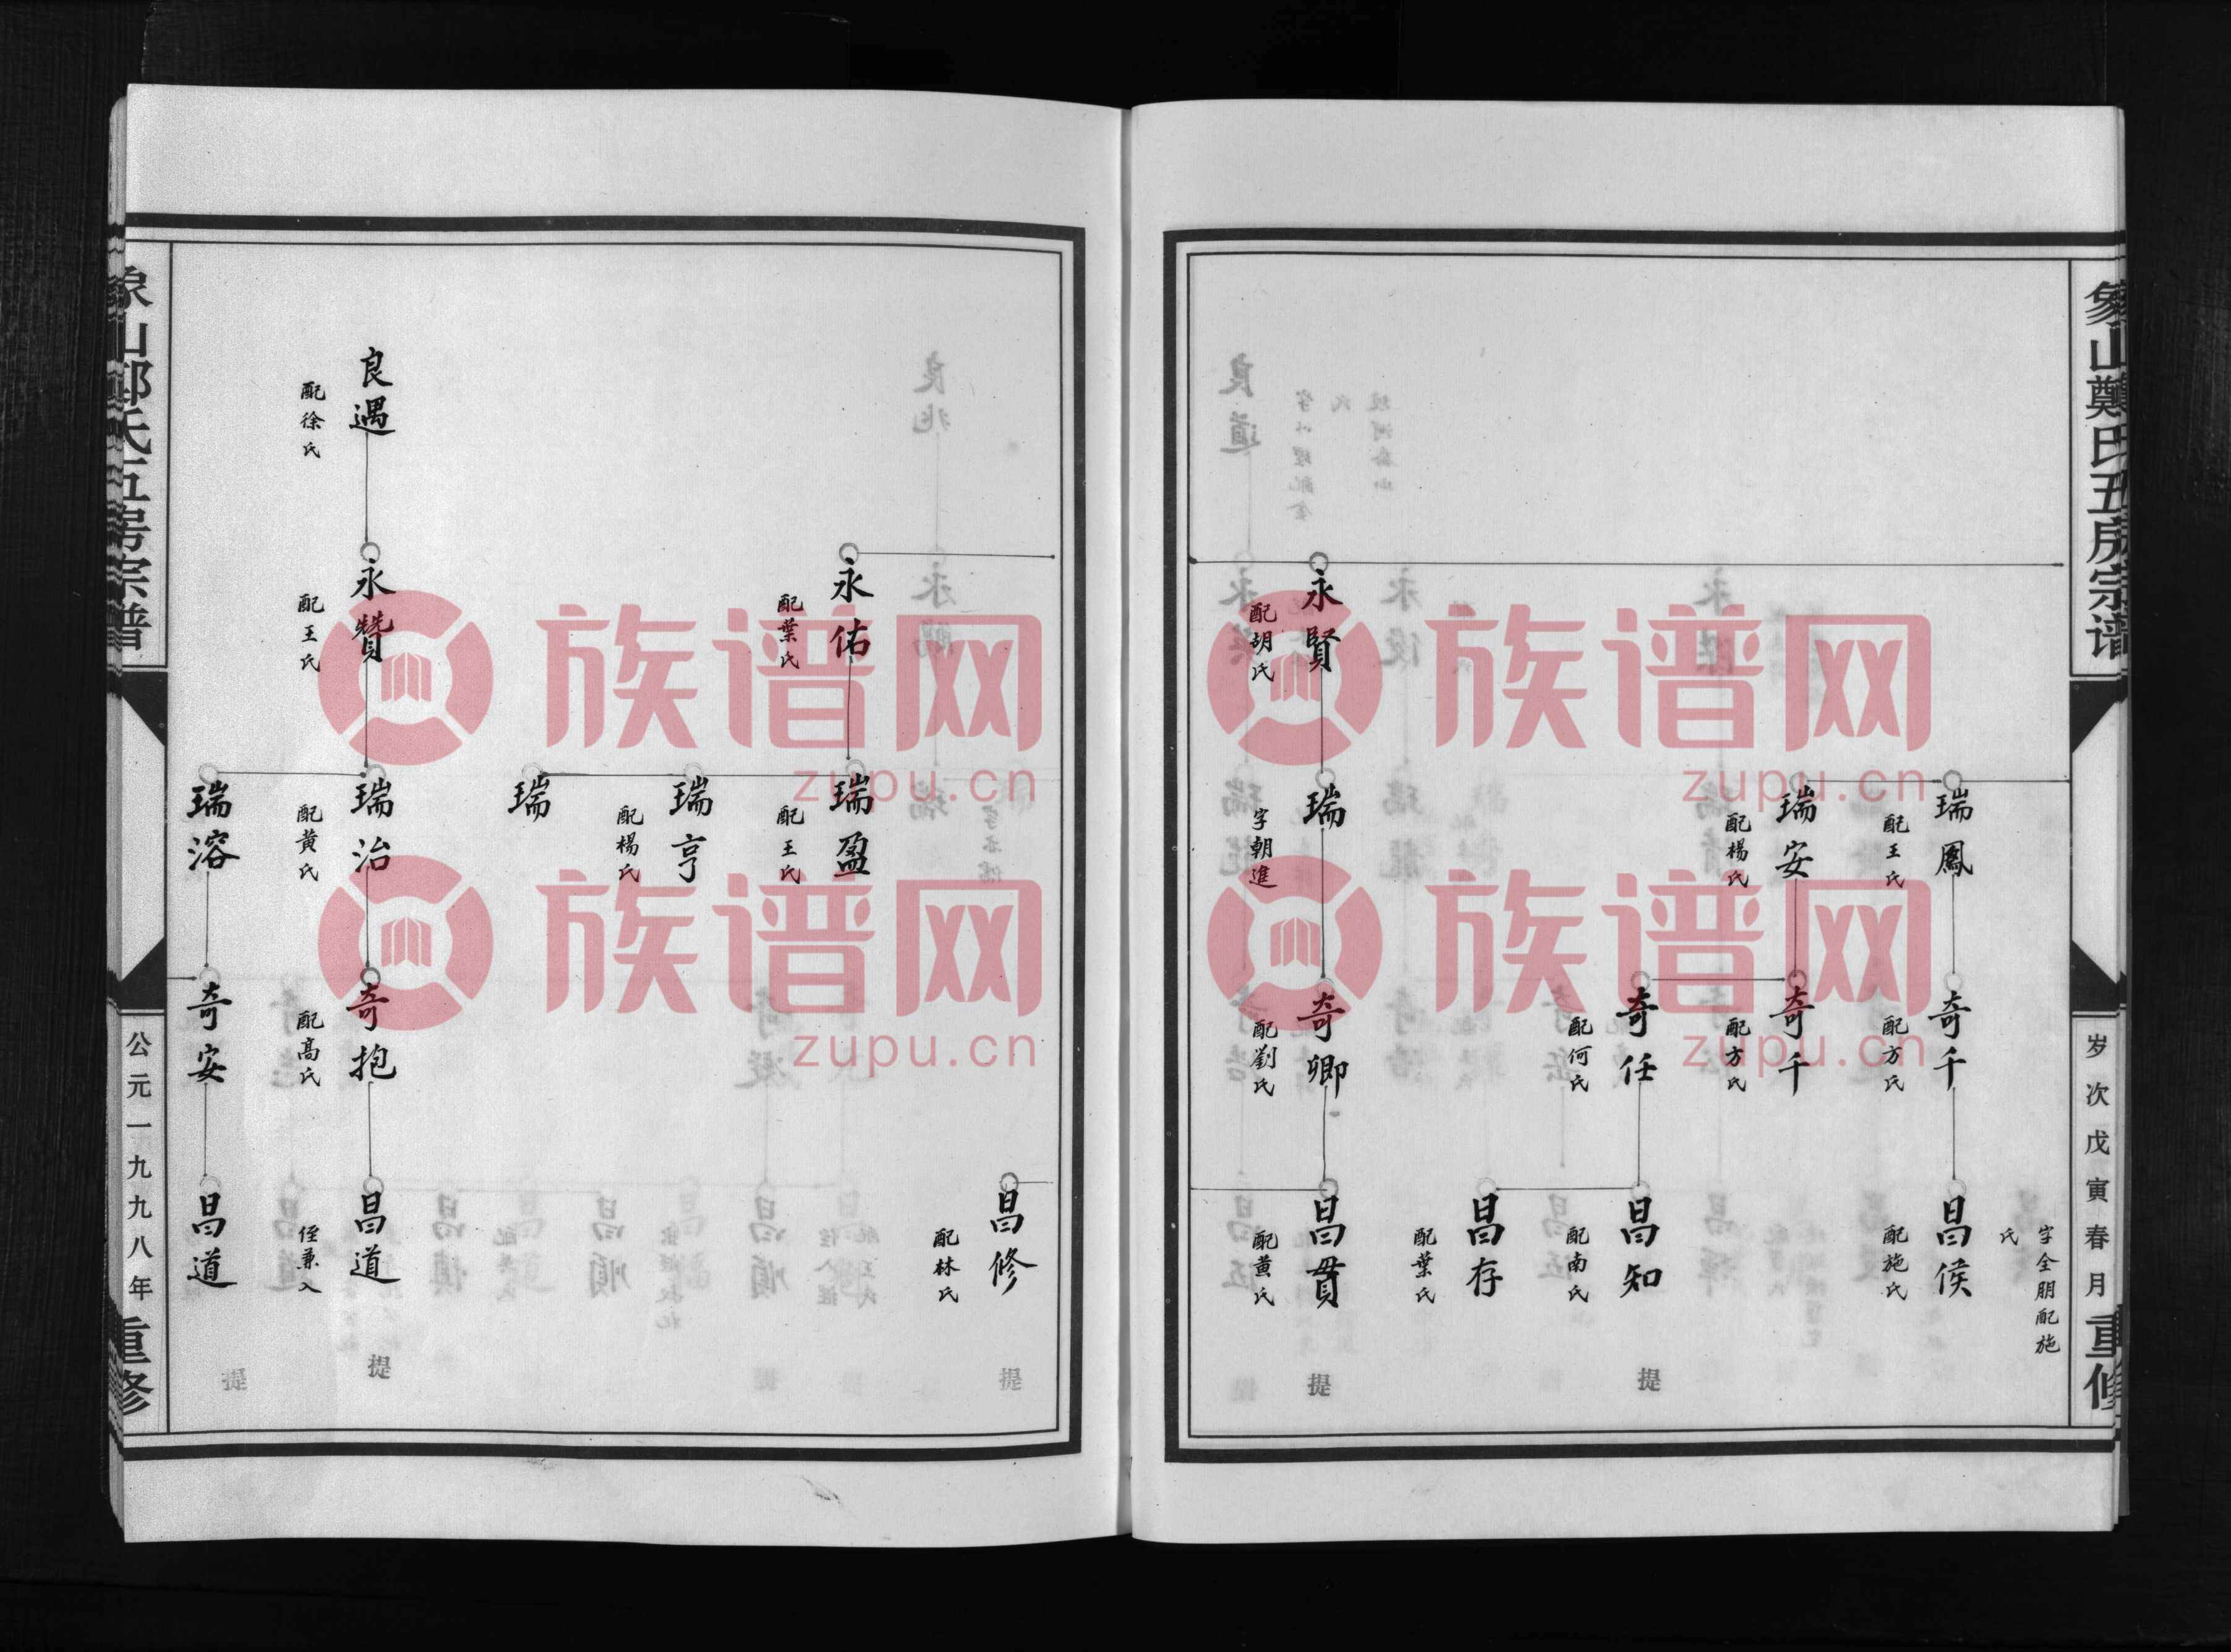 象山鄭氏五房宗谱
岁次戊寅春月
重修
字全朋配施
氏
瑞鳳
配王氏
奇千
配方氏
昌侯
配施氏
瑞安
配楊氏
奇千
配方氏
奇任
配何氏
昌知
配南氏
提
昌存
配葉氏
永賢
配胡氏
瑞
字朝進
奇卿
配劉氏
昌貫
配黄氏
提
昌修
配林氏
提
永佑
配葉氏
瑞盈
配王氏
瑞亨
配楊氏
瑞
良遇
配徐氏
永贊
配王氏
瑞治
配黄氏
奇抱
配高氏
昌道
侄兼入
提
瑞溶
奇安
昌道
提
象山鄭氏五房宗譜
公元一九九八年
重修
族谱网
zupu.cn
族谱网
zupu.cn
族谱网
zupu.cn
族谱网
zupu.cn